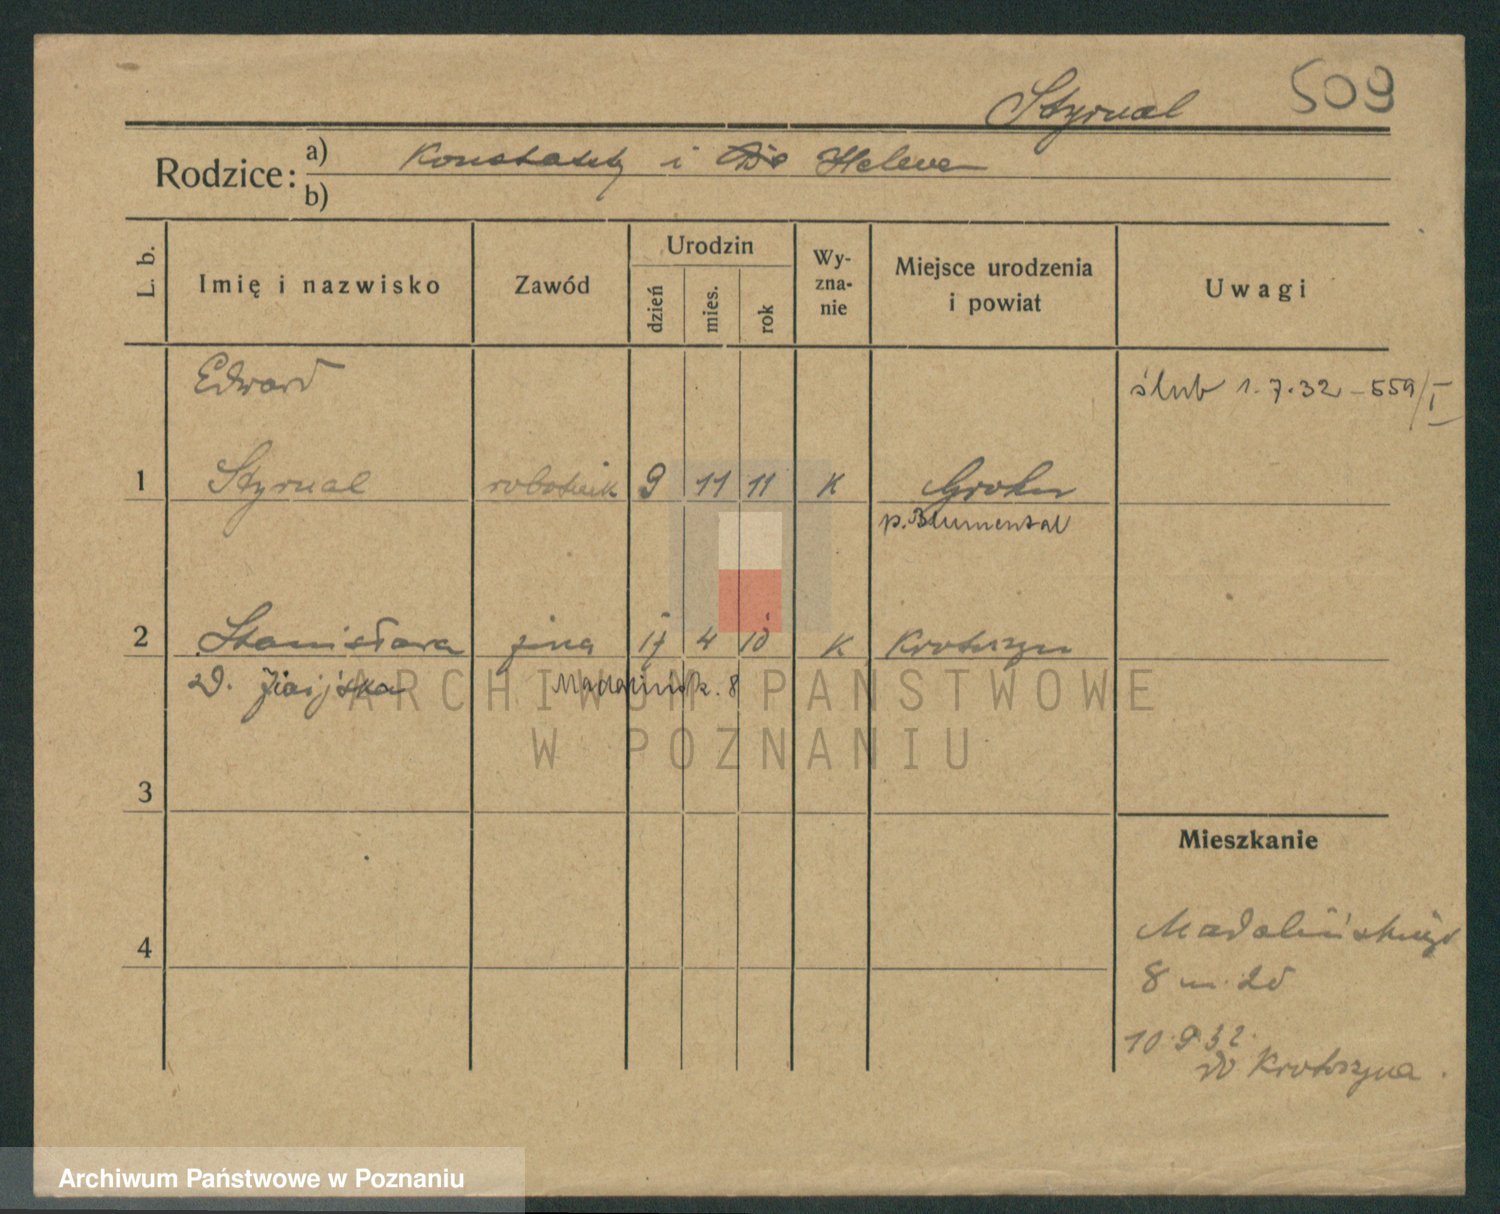 509
Styrnal
Rodzice: a) Konstanty i Helena
b)
L. b.
Imię i nazwisko
Zawód
Urodzin
dzień
mies.
rok
Wy-
zna-
nie
Miejsce urodzenia
i powiat
Uwagi
Edward
ślub 1.7.32 - 559/I
1 Styrnal robotnik 9 11 11 K Grohn
p. Blumental
2 Stanisława żona 17 4 10 K Krotoszyn
Madalińsk. 8
ARCHIWUM PAŃSTWOWE
W POZNANIU
3
Mieszkanie
4
Madalińskiego
8 m. 20
10.9.32.
do Krotoszyna.
Archiwum Państwowe w Poznaniu